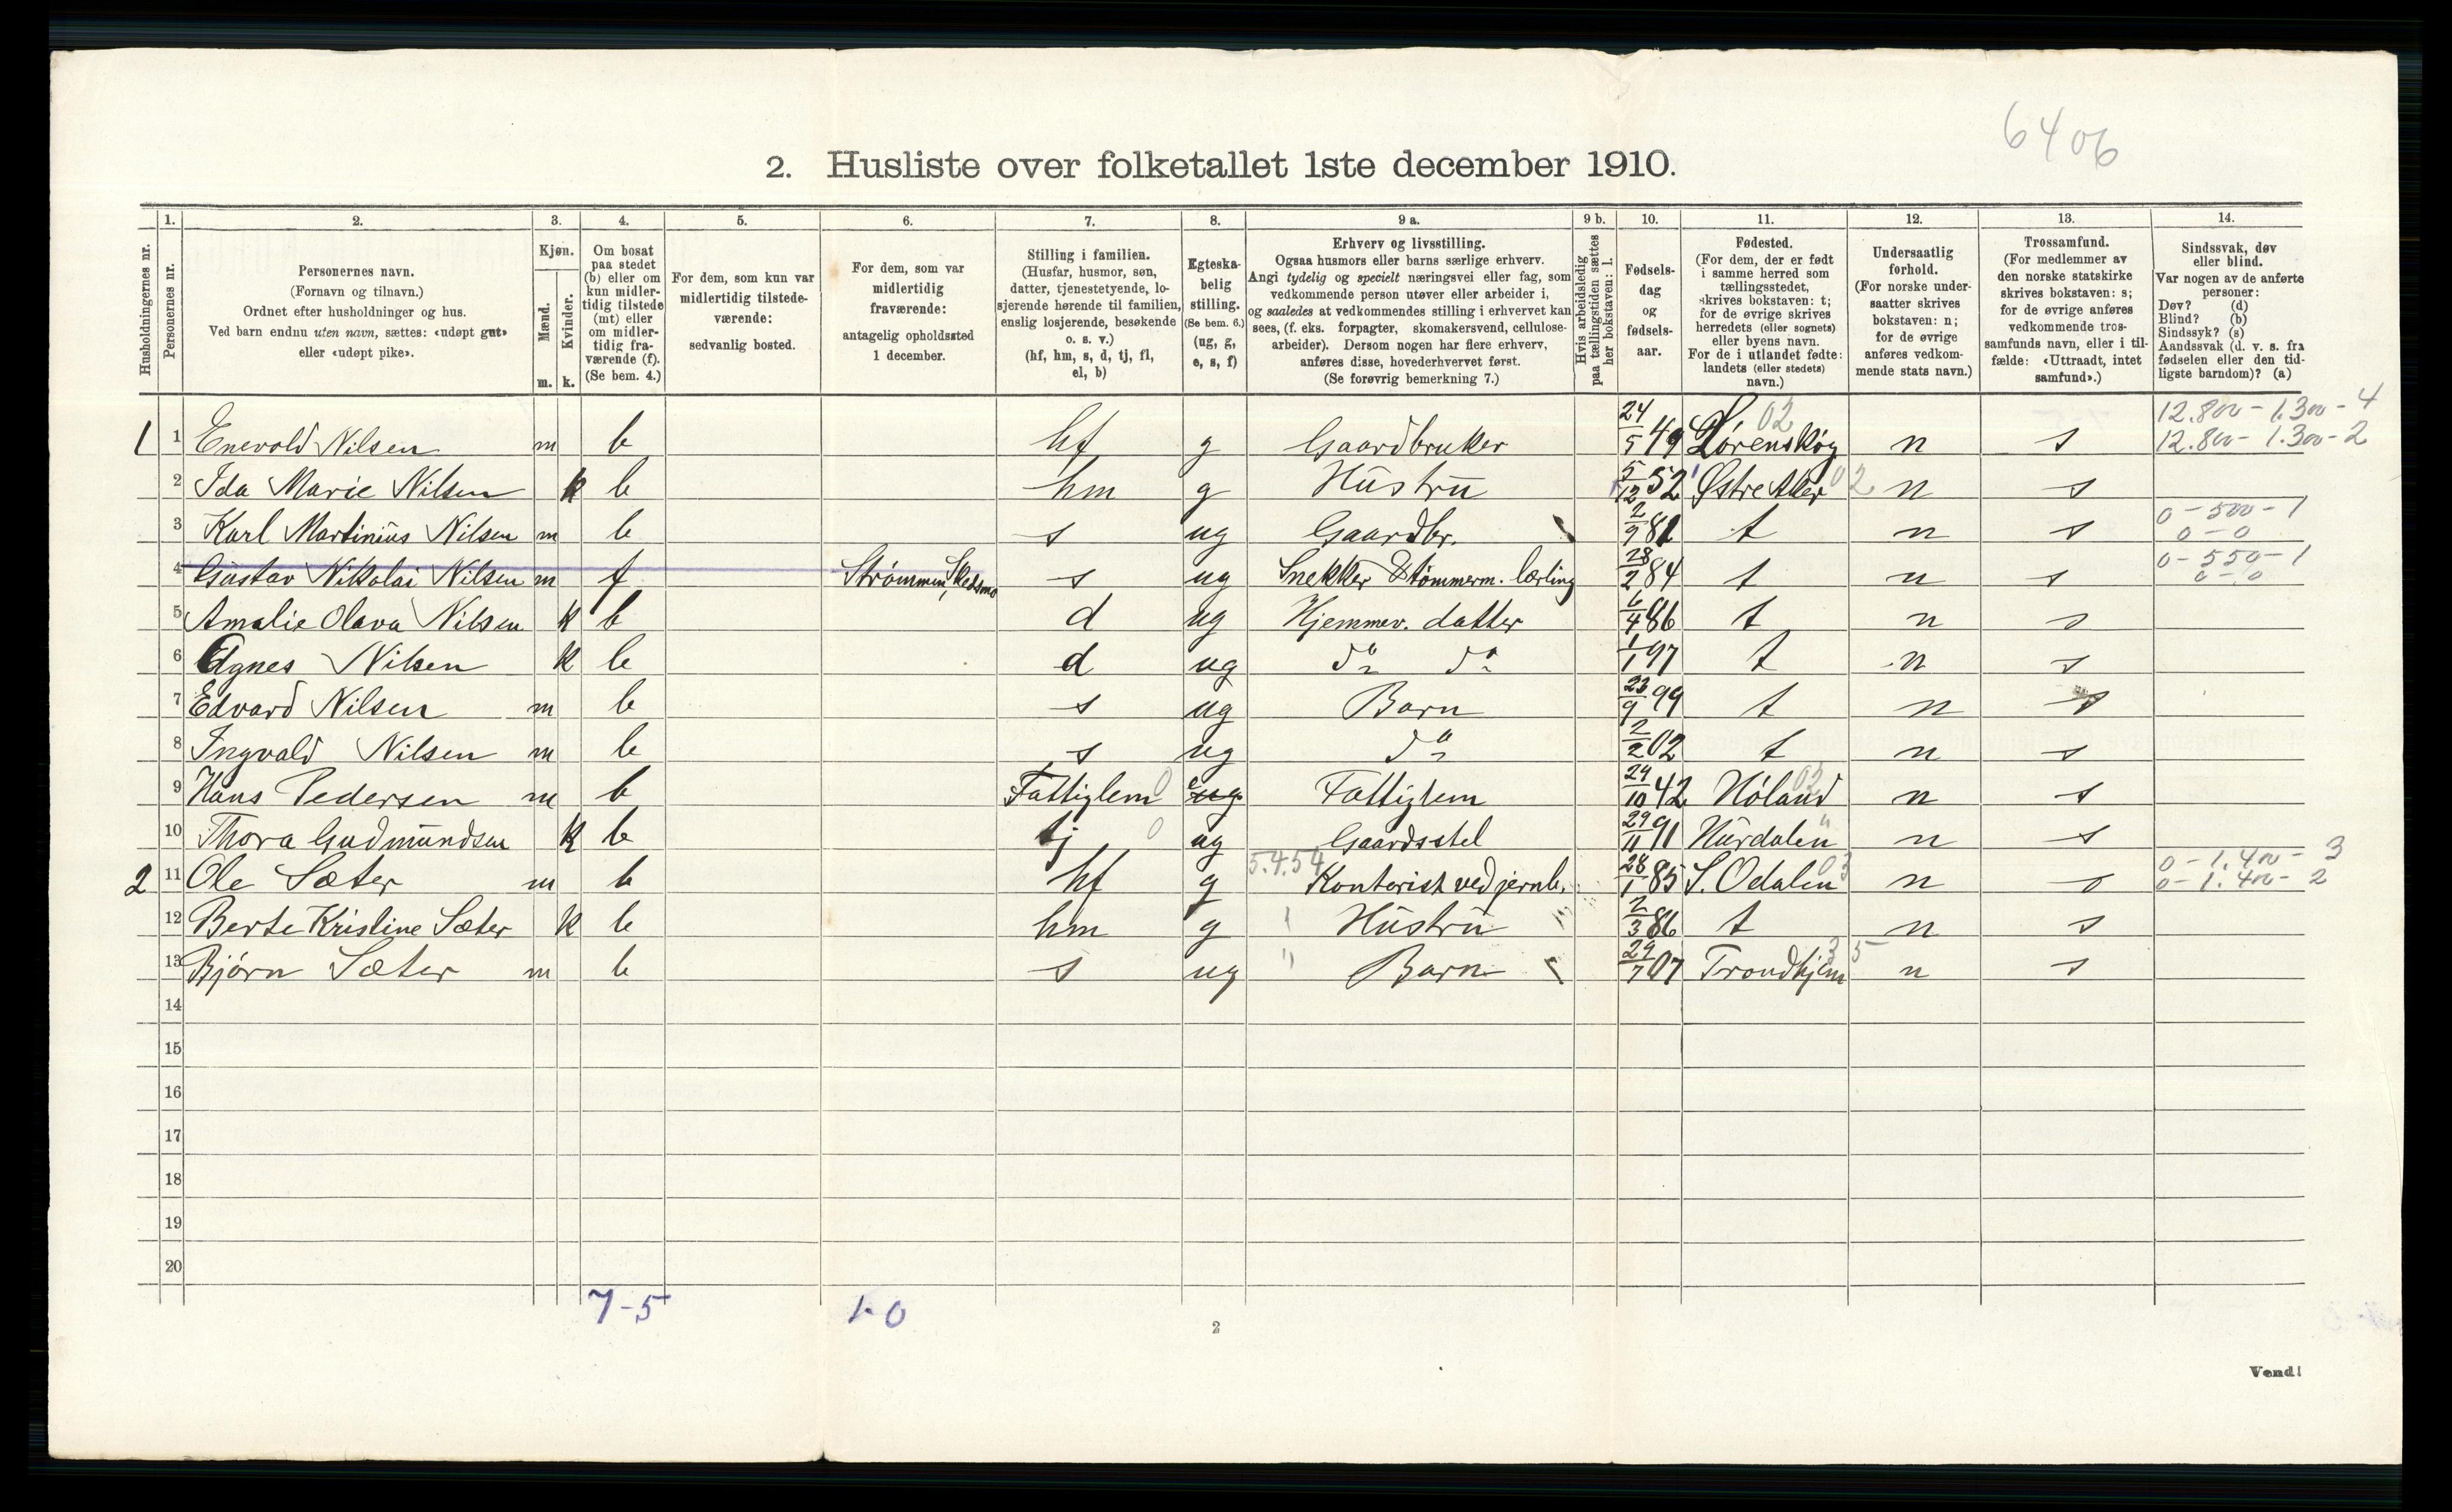 6406
2. Husliste over folketallet 1ste december 1910.
Husholdningernes nr.
1.
Personernes nr.
2.
Personernes navn.
(Fornavn og tilnavn.)
Ordnet efter husholdninger og hus.
Ved barn endnu uten navn, sættes: «udøpt gut»
eller «udøpt pike».
3.
Kjøn.
Mænd.
Kvinder.
m. k.
4.
Om bosat
paa stedet
(b) eller om
kun midler-
tidig tilstede
(mt) eller
om midler-
tidig fra-
værende (f).
(Se bem. 4.)
5.
For dem, som kun var
midlertidig tilstede-
værende:
sedvanlig bosted.
6.
For dem, som var
midlertidig
fraværende:
antagelig opholdssted
1 december.
7.
Stilling i familien.
(Husfar, husmor, søn,
datter, tjenestetyende, lo-
sjerende hørende til familien,
enslig losjerende, besøkende
o. s. v.)
(hf, hm, s, d, tj, fl,
el, b)
8.
Egteska-
belig
stilling.
(Se bem. 6.)
(ug, g,
e, s, f)
9 a.
Erhverv og livsstilling.
Ogsaa husmors eller barns særlige erhverv.
Angi tydelig og specielt næringsvei eller fag, som
vedkommende person utøver eller arbeider i,
og saaledes at vedkommendes stilling i erhvervet kan
sees, (f. eks. forpagter, skomakersvend, cellulose-
arbeider). Dersom nogen har flere erhverv,
anføres disse, hovederhvervet først.
(Se forøvrig bemerkning 7.)
9 b.
Hvis arbeidsledig
paa tællingstiden sættes
her bokstaven: l.
10.
Fødsels-
dag
og
fødsels-
aar.
11.
Fødested.
(For dem, der er født
i samme herred som
tællingsstedet,
skrives bokstaven: t;
for de øvrige skrives
herredets (eller sognets)
eller byens navn.
For de i utlandet fødte:
landets (eller stedets)
navn.)
12.
Undersaatlig
forhold.
(For norske under-
saatter skrives
bokstaven: n;
for de øvrige
anføres vedkom-
mende stats navn.)
13.
Trossamfund.
(For medlemmer av
den norske statskirke
skrives bokstaven: s;
for de øvrige anføres
vedkommende tros-
samfunds navn, eller i til-
fælde: «Uttraadt, intet
samfund».)
14.
Sindssvak, døv
eller blind.
Var nogen av de anførte
personer:
Døv? (d)
Blind? (b)
Sindssyk? (s)
Aandssvak (d. v. s. fra
fødselen eller den tid-
ligste barndom)? (a)
1 1 Enevold Nilsen m b hf g Gaardbruker 24/5 49 Lørenskog 02 n s 12.800 - 1.300 - 4
12.800 - 1.300 - 2
2 Ida Marie Nilsen k b hm g Hustru 5/12 52 Østre Aker 02 n s
3 Karl Martinius Nilsen m b s ug Gaardbr. 2/9 81 t n s 0 - 500 - 1
0 - 0
4 Gustav Nikolai Nilsen m f Strømmen, Skedsmo s ug Snekker & tømmerm. lærling 28/2 84 t n s 0 - 550 - 1
0 - 0
5 Amalie Olava Nilsen k b d ug Hjemmev. datter 6/4 86 t n s
6 Agnes Nilsen k b d ug do do 1/1 97 t n s
7 Edvard Nilsen m b s ug Barn 23/9 99 t n s
8 Ingvald Nilsen m b s ug do 2/2 02 t n s
9 Hans Pedersen m b Fattiglem 0 e ug Fattiglem 24/10 42 Høland 02 n s
10 Thora Gudmundsen k b tj 0 ug Gaardsstel 29/11 91 Hurdalen " n s
2 11 Ole Sæter m b hf g 5.4.54 Kontorist ved jernb. 28/1 85 S. Odalen 03 n s 0 - 1.400 - 3
0 - 1.400 - 2
12 Berte Kristine Sæter k b hm g Hustru 2/3 86 t n s
13 Bjørn Sæter m b s ug " Barn 29/7 07 Trondhjem 35 n s
14
15
16
17
18
19
20
7-5 1-0
2
Vend!